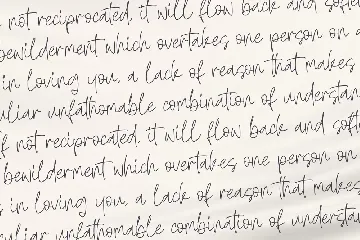 not reciprocated, it will flow back and
bewilderment which overtakes one person on
in loving you, a lack of reason that makes
unfathomable combination of
not reciprocated, it will flow back and
bewilderment which overtakes one person on
in loving you, a lack of reason that makes
unfathomable combination of